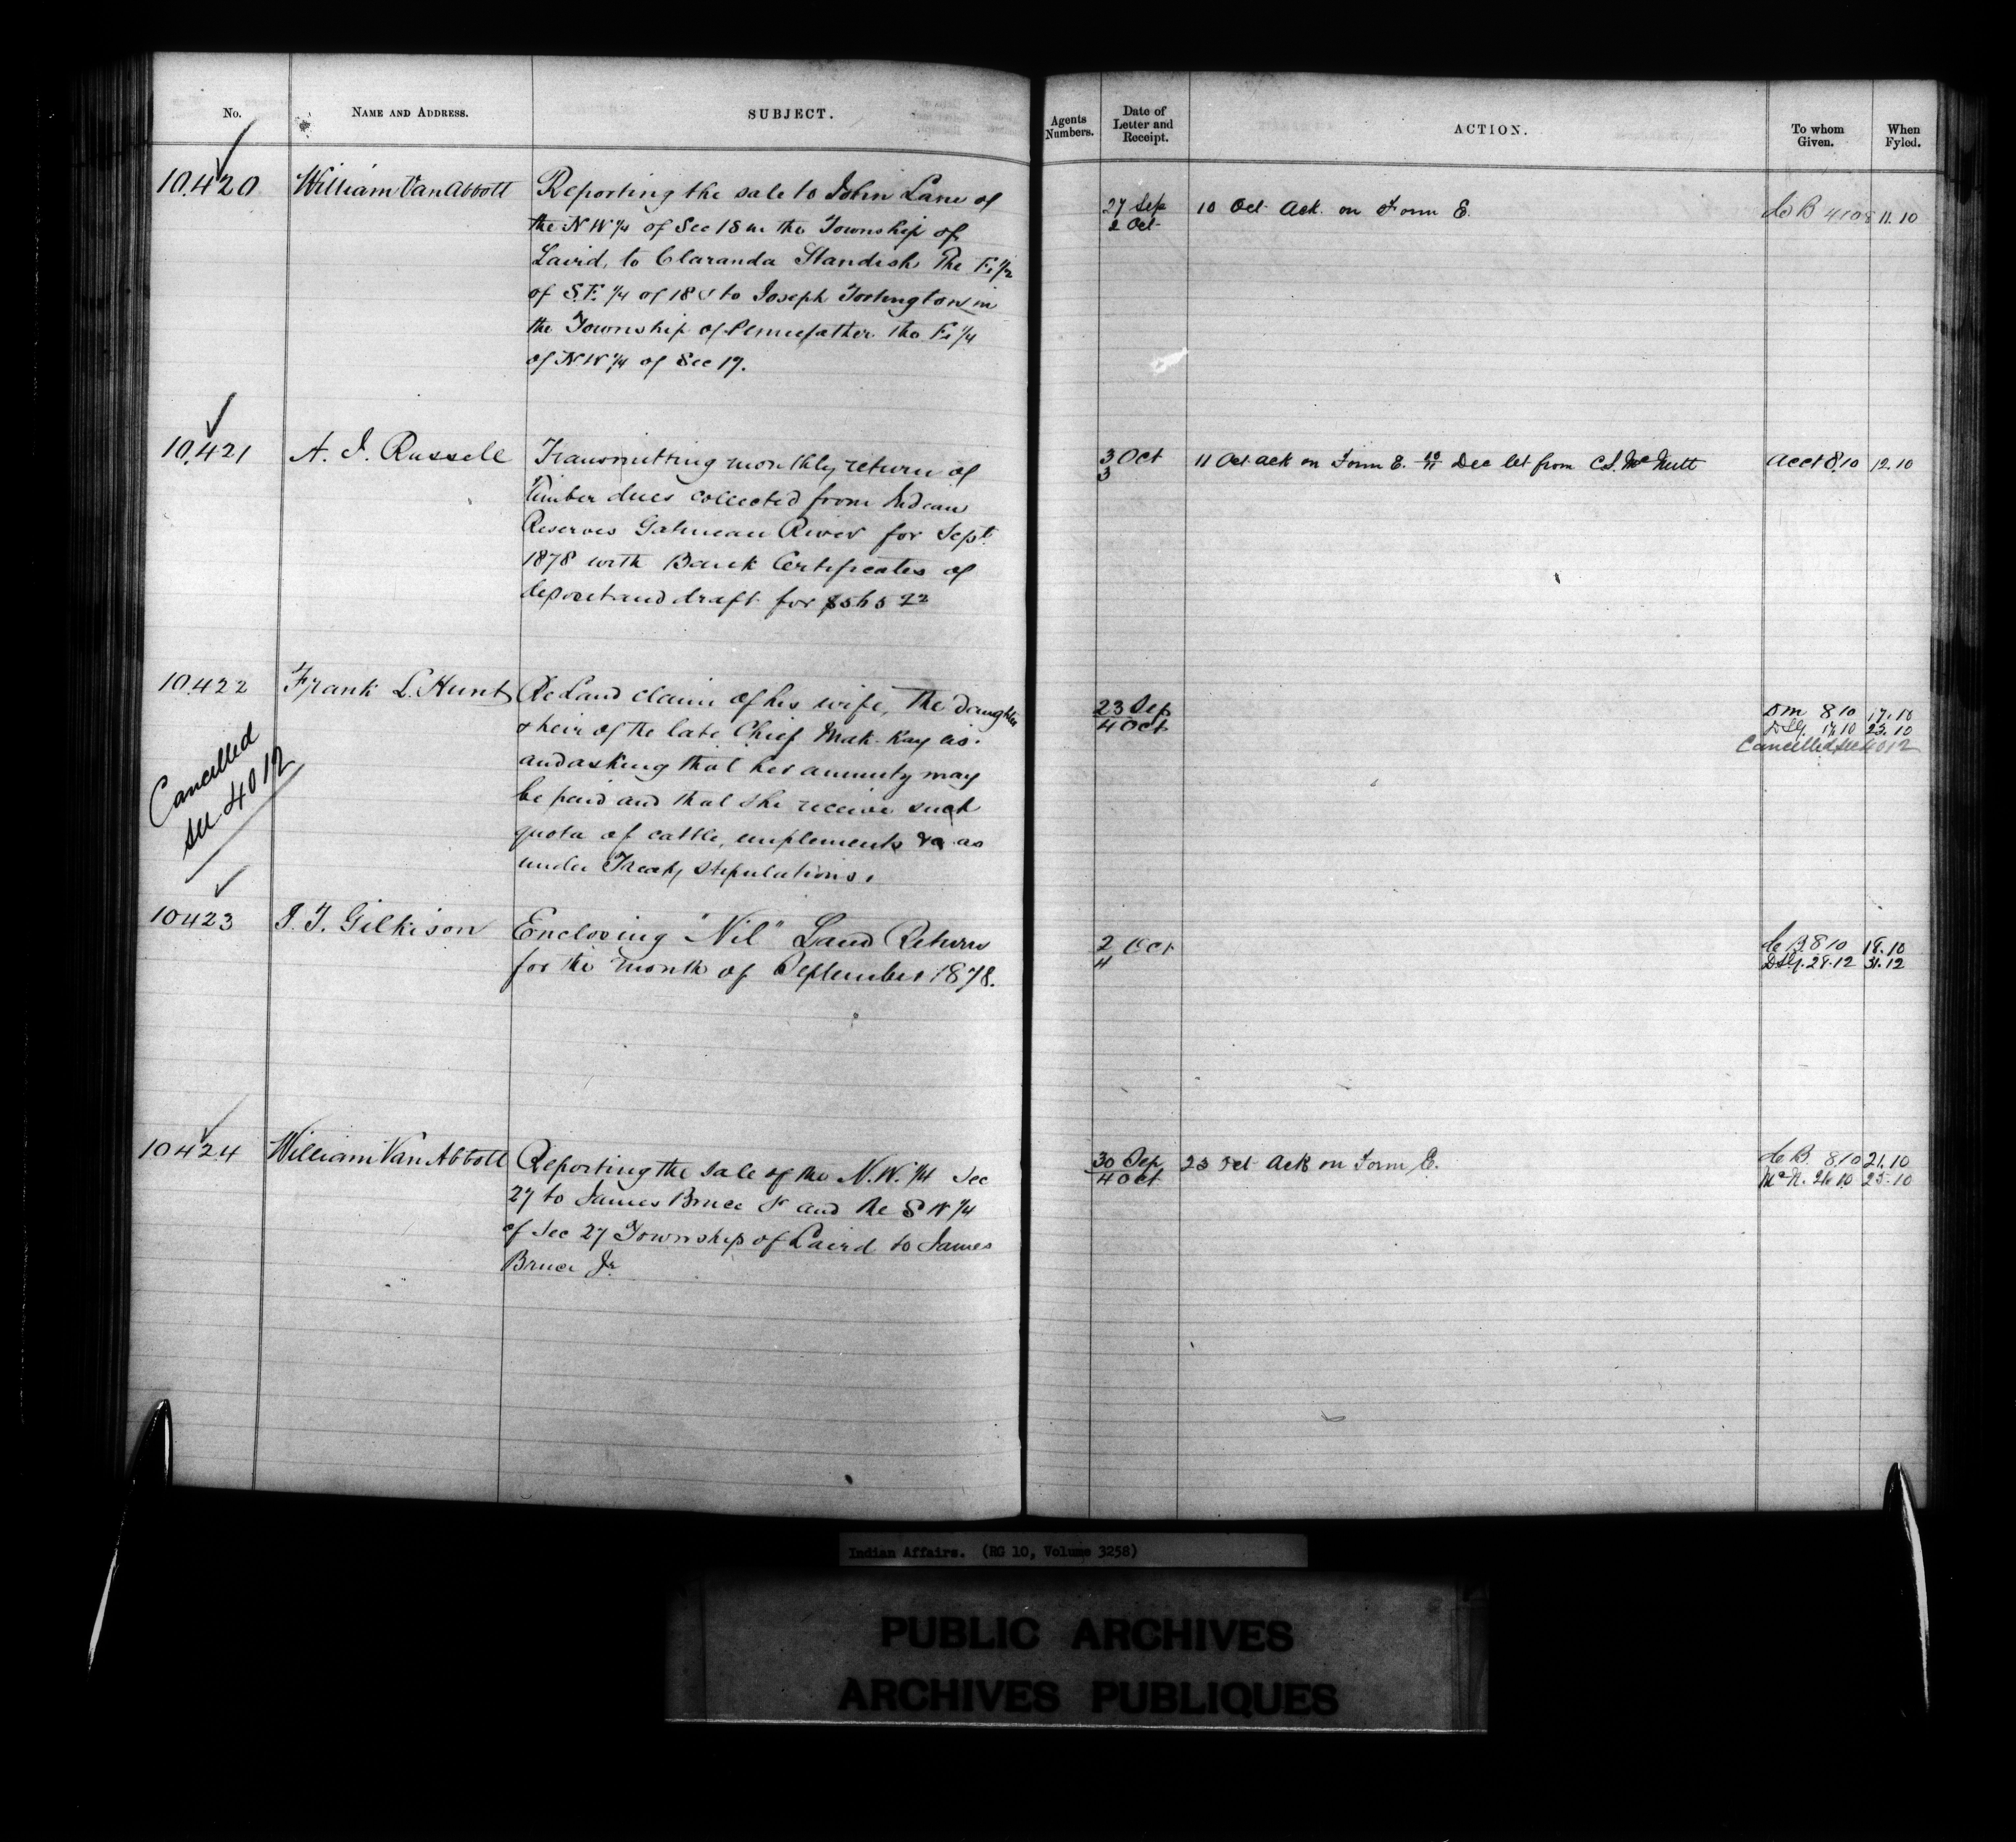 No.
NAME AND ADDRESS.
SUBJECT.
Agents Numbers.
Date of Letter and Receipt.
ACTION.
To whom Given.
When Fyled.
10.420
William Van Abbott
Reporting the sale to John Lane of
the N W ¼ of Sec 18 in the Township of
Laird, to Claranda Standish The E ½
of S.E. ¼ of 18 & to Joseph in
the Township of Pennefather the E ¼
of N W ¼ of Sec 17.
27 Sep
2 Oct
10 Oct Ack. on Form E.
C B 4 10 8 11.10
10.421
A. J. Russell
Transmitting monthly return of
Timber dues collected from Indian
Reserves Gatineau River for Sept
1878 with Bank Certificates of
deposit and draft for $565 22
3 Oct
3
11 Oct ack on Form E. Dec let from C.S. McNutt
Acct 8.10 12.10
10.422
Frank L. Hunt
Re Land claim of his wife, The daughter
& heir of the late Chief Mak-Kay-cis.
and asking that her annuity may
be paid and that she receive such
quota of cattle, implements &c as
under Treaty stipulations.
Cancelled
see 4012
23 Sep
4 Oct
D M 8 10 17.10
23.10
Cancelled see 4012
10423
J. T. Gilkison
Enclosing "Nil" Land Return
for the month of September 1878.
2 Oct
4
C B. 8 10 18.10
28.12 31.12
10424
William Van Abbott
Reporting the sale of the N.W. ¼ Sec
27 to James Bruce Sr and the S W ¼
of Sec 27 Township of Laird to James
Bruce Jr.
30 Sep
4 Oct
23 Oct Ack on Form E.
C B. 8.10 21.10
McN. 25.10
Indian Affairs. (RG 10, Volume 3258)
PUBLIC ARCHIVES
ARCHIVES PUBLIQUES